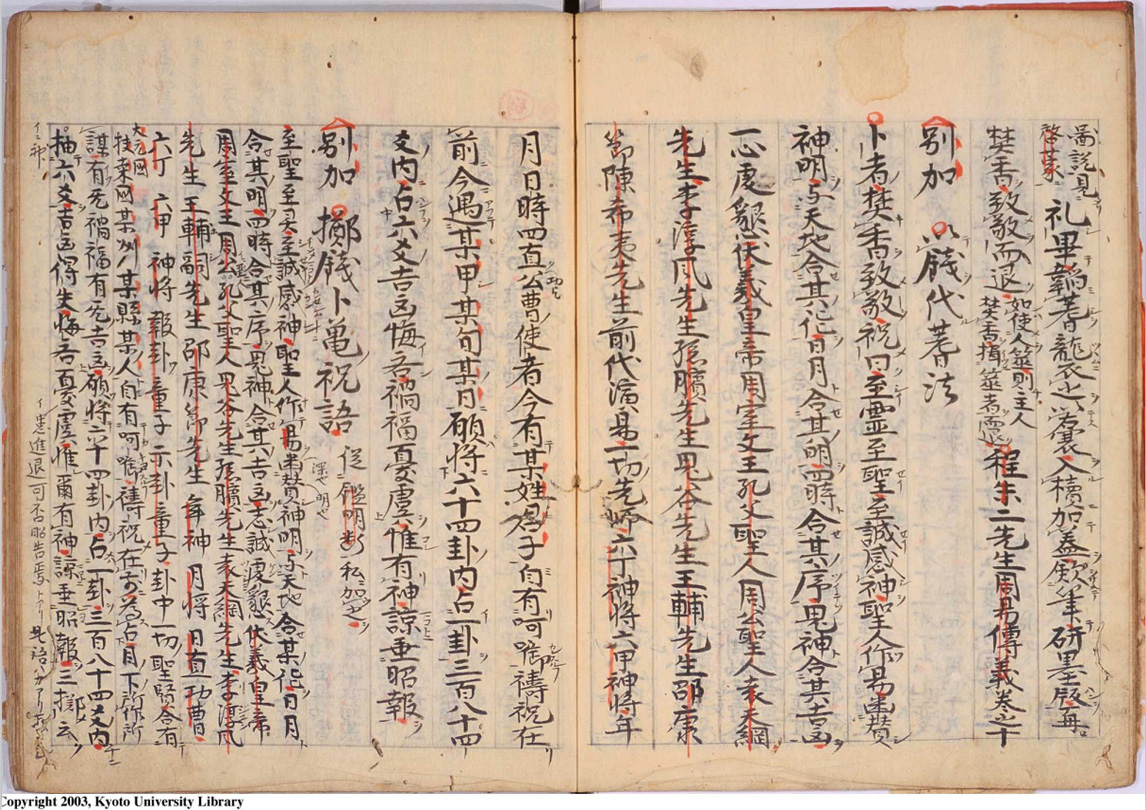 圖説見
啓蒙
礼畢韜蓍龍衣之以囊入櫝加蓋歛筆研墨版再
焚香致敬而退
如使人筮則主人
焚香揖筮者而還
程朱二先生周易傳義巻之十
別加 以錢代蓍法
卜者焚香致敬祝曰至霊至聖至誠感神聖人作易幽賛
神明与天地合其化日月合其明四時合其序鬼神合其吉凶
一心虔懇伏義皇帝周室文王孔父聖人周公聖人袁天綱
先生李淳風先生孫臏先生鬼谷先生王輔先生邵康
節陳希夷先生前代演易一切先師六丁神將六甲神將年
月日時四直公曹使者今有某姓君子自有呵啣禱祝在
前今遇某甲某旬某日願將六十四卦内占一卦三百八十四
爻内占六爻吉凶悔吝禍福憂虞惟有神諒垂昭報
別加 擲錢卜亀祝語
從鑑明断
私加之
至聖至灵至誠感神聖人作易幽賛神明与天地合某化日月
合其明四時合其序鬼神合其吉凶志誠虔懇伏義皇帝
周室文王周公孔父聖人鬼谷先生孫臏先生袁天綱先生李淳風
先生王輔嗣先生邵康節先生年神月將日直功曹
六丁六甲神將報卦童子示卦童子卦中一切聖賢今有
大元國
某州某縣某人自有呵啣禱祝在前為占月下所作所
謀有无禍福有无吉凶願將六十四卦内占一卦三百八十四爻内
抽六爻吉凶得失悔吝憂虞惟爾有神諒垂昭報三擲云
進退可否昭告焉
Copyright 2003, Kyoto University Library